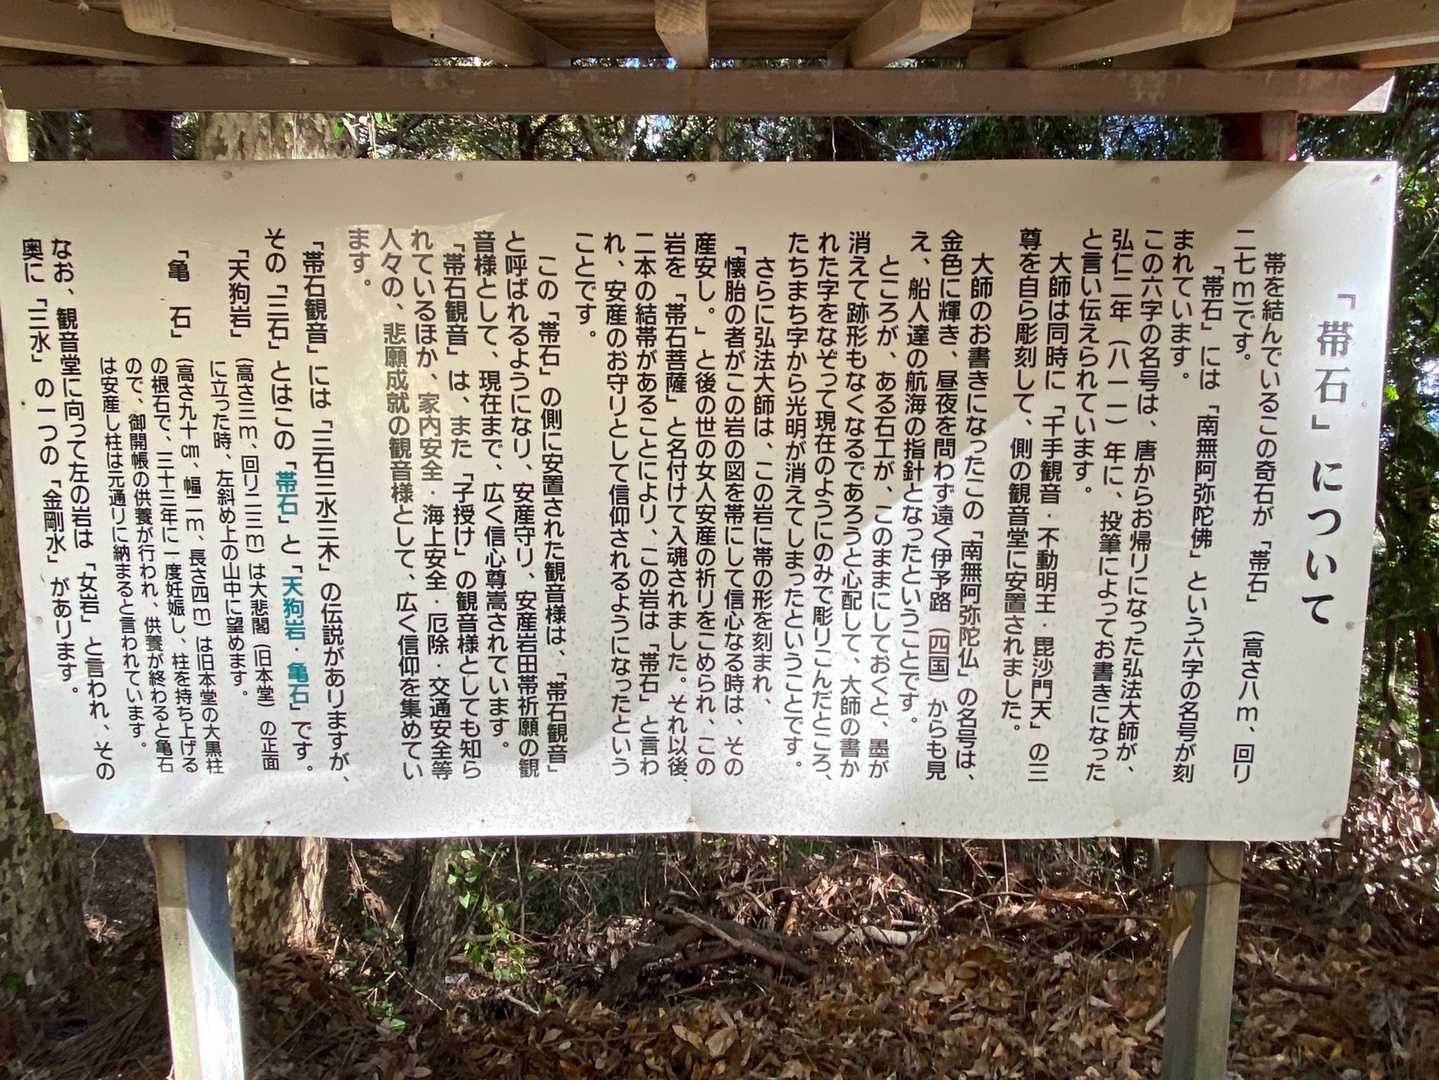 「帯石」について
帯を結んでいるこの奇石が「帯石」（高さ八ｍ、回り
二七ｍ)です。
「帯石」には「南無阿弥陀佛」という六字の名号が刻
まれています。
この六字の名号は、唐からお帰りになった弘法大師が、
弘仁二年（八一一）年に、投筆によってお書きになった
と言い伝えられています。
大師は同時に「千手観音・不動明王・毘沙門天」の三
尊を自ら彫刻して、側の観音堂に安置されました。
大師のお書きになったこの「南無阿弥陀仏」の名号は、
金色に輝き、昼夜を問わず遠く伊予路（四国）からも見
え、船人達の航海の指針となったということです。
ところが、ある石工が、このままにしておくと、墨が
消えて跡形もなくなるであろうと心配して、大師の書か
れた字をなぞって現在のようにのみで彫りこんだところ、
たちまち字から光明が消えてしまったということです。
さらに弘法大師は、この岩に帯の形を刻まれ、
「懐胎の者がこの岩の図を帯にして信心なる時は、その
産安し。」と後の世の女人安産の祈りをこめられ、この
岩を「帯石菩薩」と名付けて入魂されました。それ以後、
二本の結帯があることにより、この岩は「帯石」と言わ
れ、安産のお守りとして信仰されるようになったという
ことです。
この「帯石」の側に安置された観音様は、「帯石観音」
と呼ばれるようになり、安産守り、安産岩田帯祈願の観
音様として、現在まで、広く信心尊嵩されています。
「帯石観音」は、また「子授け」の観音様としても知ら
れているほか、家内安全・海上安全・厄除・交通安全等
人々の、悲願成就の観音様として、広く信仰を集めてい
ます。
「帯石観音」には「三石三水三木」の伝説がありますが、
その「三石」とはこの「帯石」と「天狗岩・亀石」です。
「天狗岩」（高さ三ｍ、回り二三ｍ）は大悲閣（旧本堂）の正面
に立った時、左斜め上の山中に望めます。
「亀 石」（高さ九十㎝、幅二ｍ、長さ四ｍ）は旧本堂の大黒柱
の根石で、三十三年に一度妊娠し、柱を持ち上げる
ので、御開帳の供養が行われ、供養が終わると亀石
は安産し柱は元通りに納まると言われています。
なお、観音堂に向って左の岩は「女岩」と言われ、その
奥に「三水」の一つの「金剛水」があります。